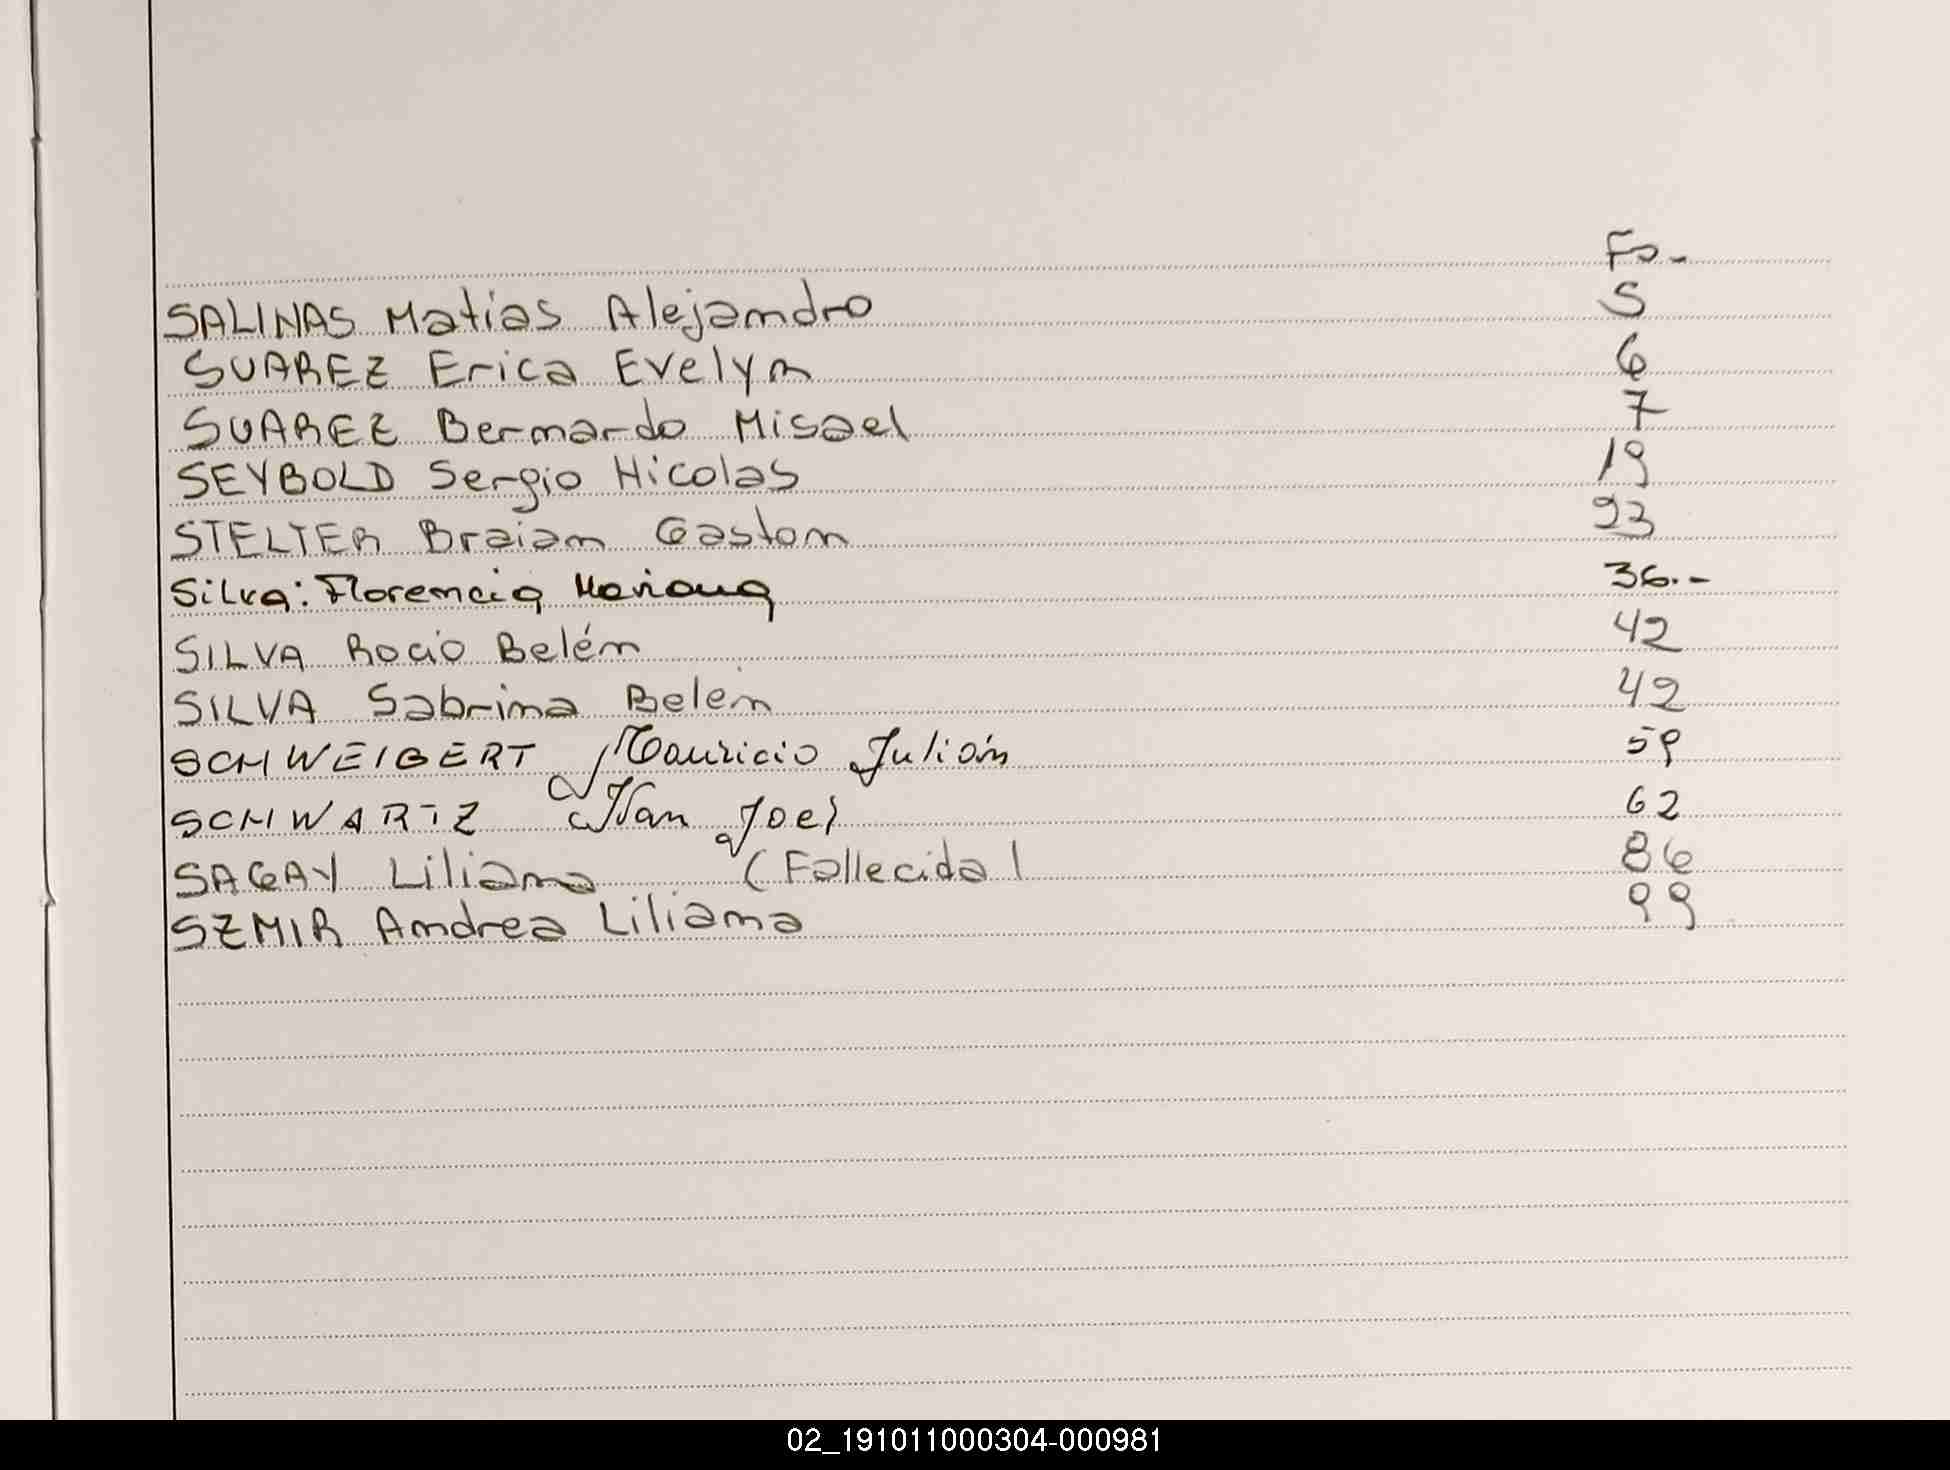 Fo.-
SALINAS Matias Alejandro 5
SUAREZ Erica Evelyn 6
SUAREZ Bernardo Misael 7
SEYBOLD Sergio Nicolas 19
STELTER Braian Gaston 23
Silva: Florencia Mariana 36.-
SILVA Rocio Belén 42
SILVA Sabrina Belen 42
SCHWEIGERT Mauricio Julián 59
SCHWARTZ Ilan Joel 62
SAGAY Liliana (Fallecida) 86
SZMIR Andrea Liliana 99
02_191011000304-000981